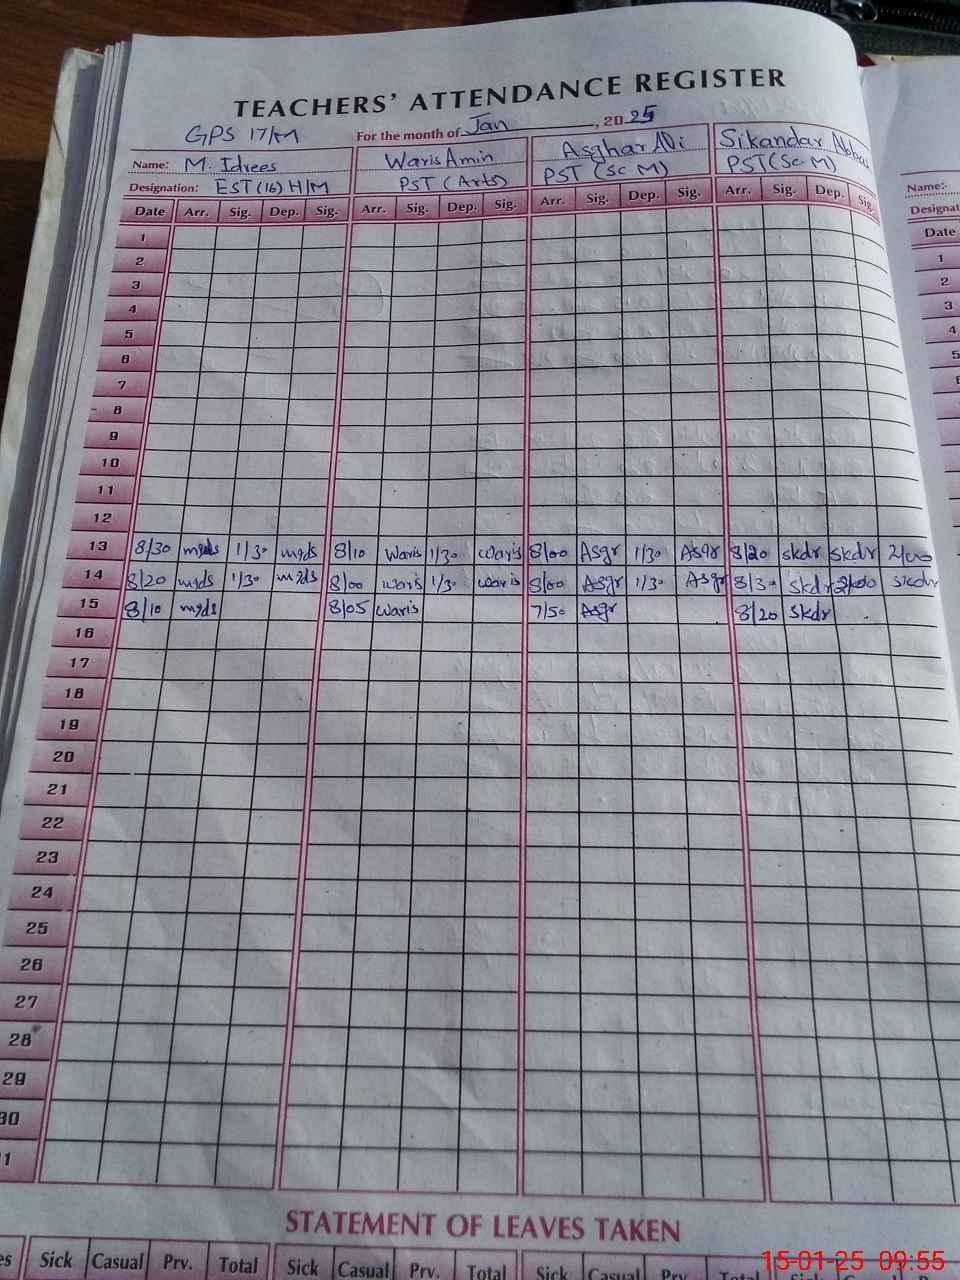 TEACHERS' ATTENDANCE REGISTER
GPS 17/M For the month of Jan, 2025
Name: M. Idrees Waris Amin Asghar Ali Sikandar Abbas
Designation: EST (16) H/M PST (Arts) PST (Sc. M) PST (Sc. M)
Date Arr. Sig. Dep. Sig. Arr. Sig. Dep. Sig. Arr. Sig. Dep. Sig. Arr. Sig. Dep. Sig.
1
2
3
4
5
6
7
8
9
10
11
12
13 8/30 mgds 1/30 mgds 8/10 Waris 1/30 Waris 8/00 Asgr 1/30 Asgr 8/20 Skdr Skdr 2/00
14 8/20 mgds 1/30 mgds 8/00 Waris 1/30 Waris 8/00 Asgr 1/30 Asgr 8/30 Skdr 2/00 Skdr
15 8/10 mgds 8/05 Waris 7/50 Asgr 8/20 Skdr
16
17
18
19
20
21
22
23
24
25
26
27
28
29
30
1
STATEMENT OF LEAVES TAKEN
es Sick Casual Prv. Total Sick Casual Prv. Total Sick Casual
Name:-
Designat
Date
1
2
3
4
5
6
15-01-25 09:55